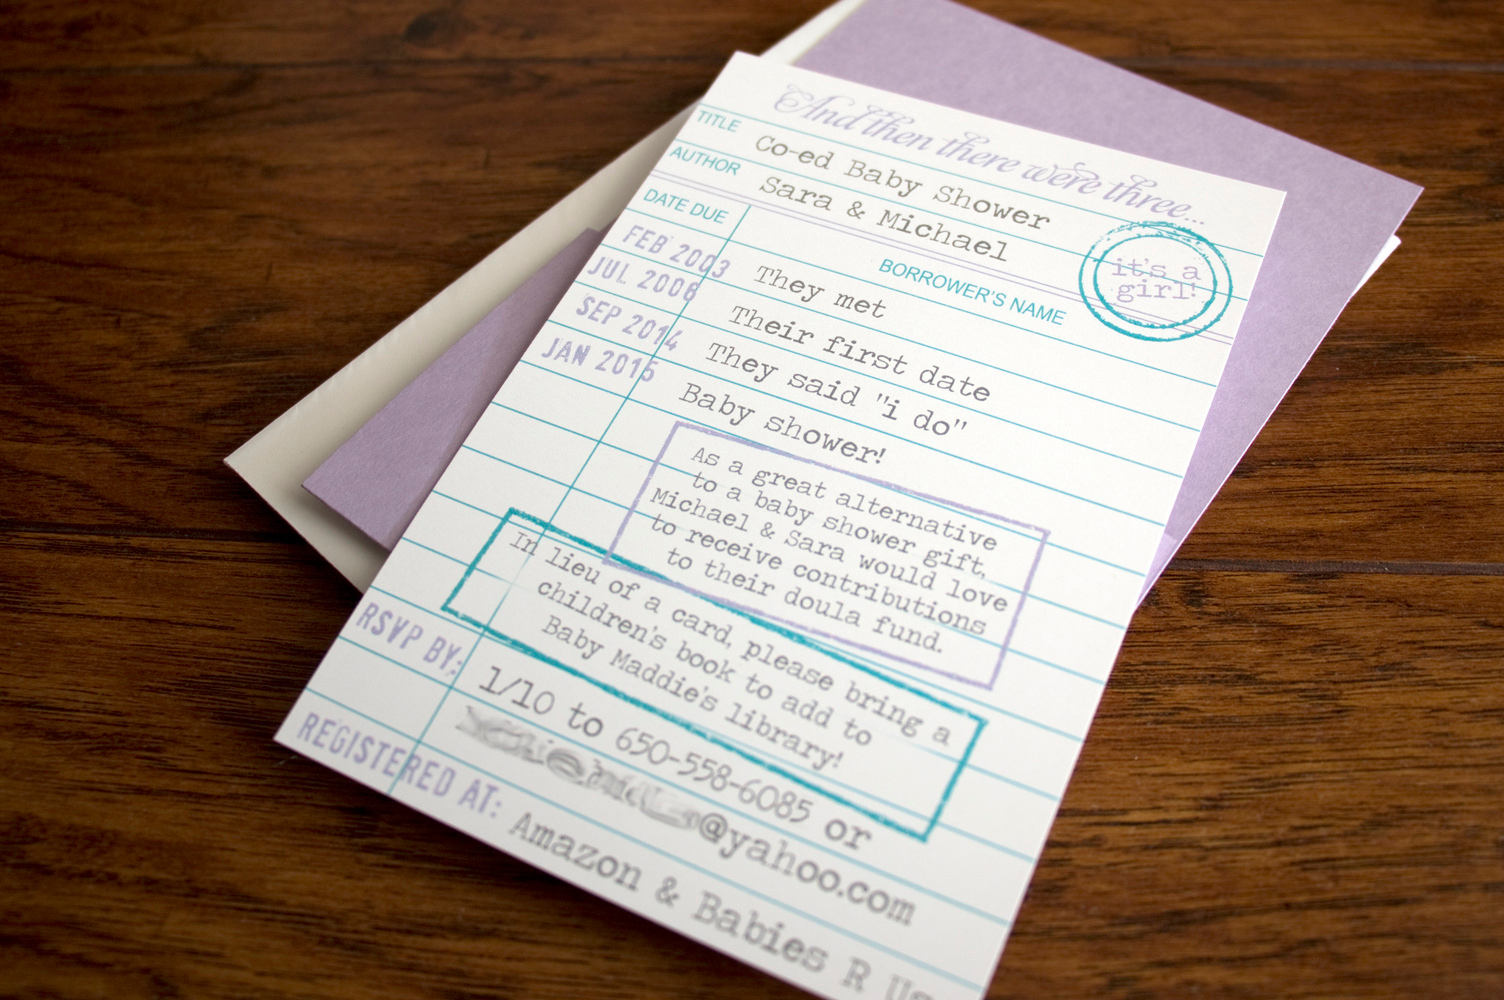 And then there were three...
TITLE Co-ed Baby Shower
AUTHOR Sara & Michael
it's a
girl!
DATE DUE BORROWER'S NAME
FEB 2003 They met
JUL 2006 Their first date
SEP 2014 They said "i do"
JAN 2015 Baby shower!
As a great alternative
to a baby shower gift,
Michael & Sara would love
to receive contributions
to their doula fund.
In lieu of a card, please bring a
children's book to add to
Baby Maddie's library!
RSVP BY: 1/10 to 650-558-6085 or
@yahoo.com
REGISTERED AT: Amazon & Babies R Us